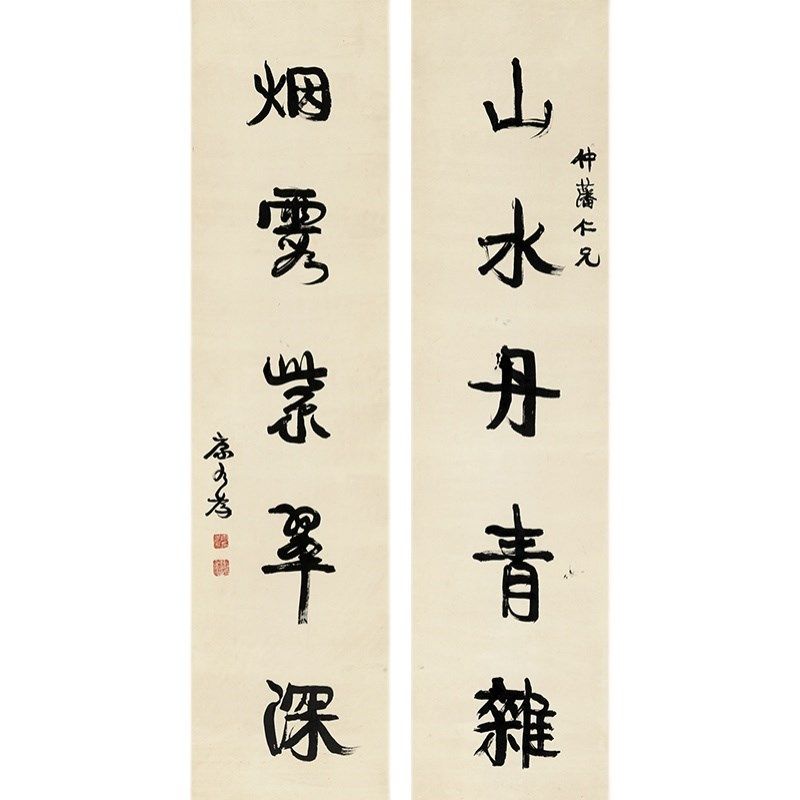 仲藩仁兄
山水丹青雜
烟霞紫翠深
康有為